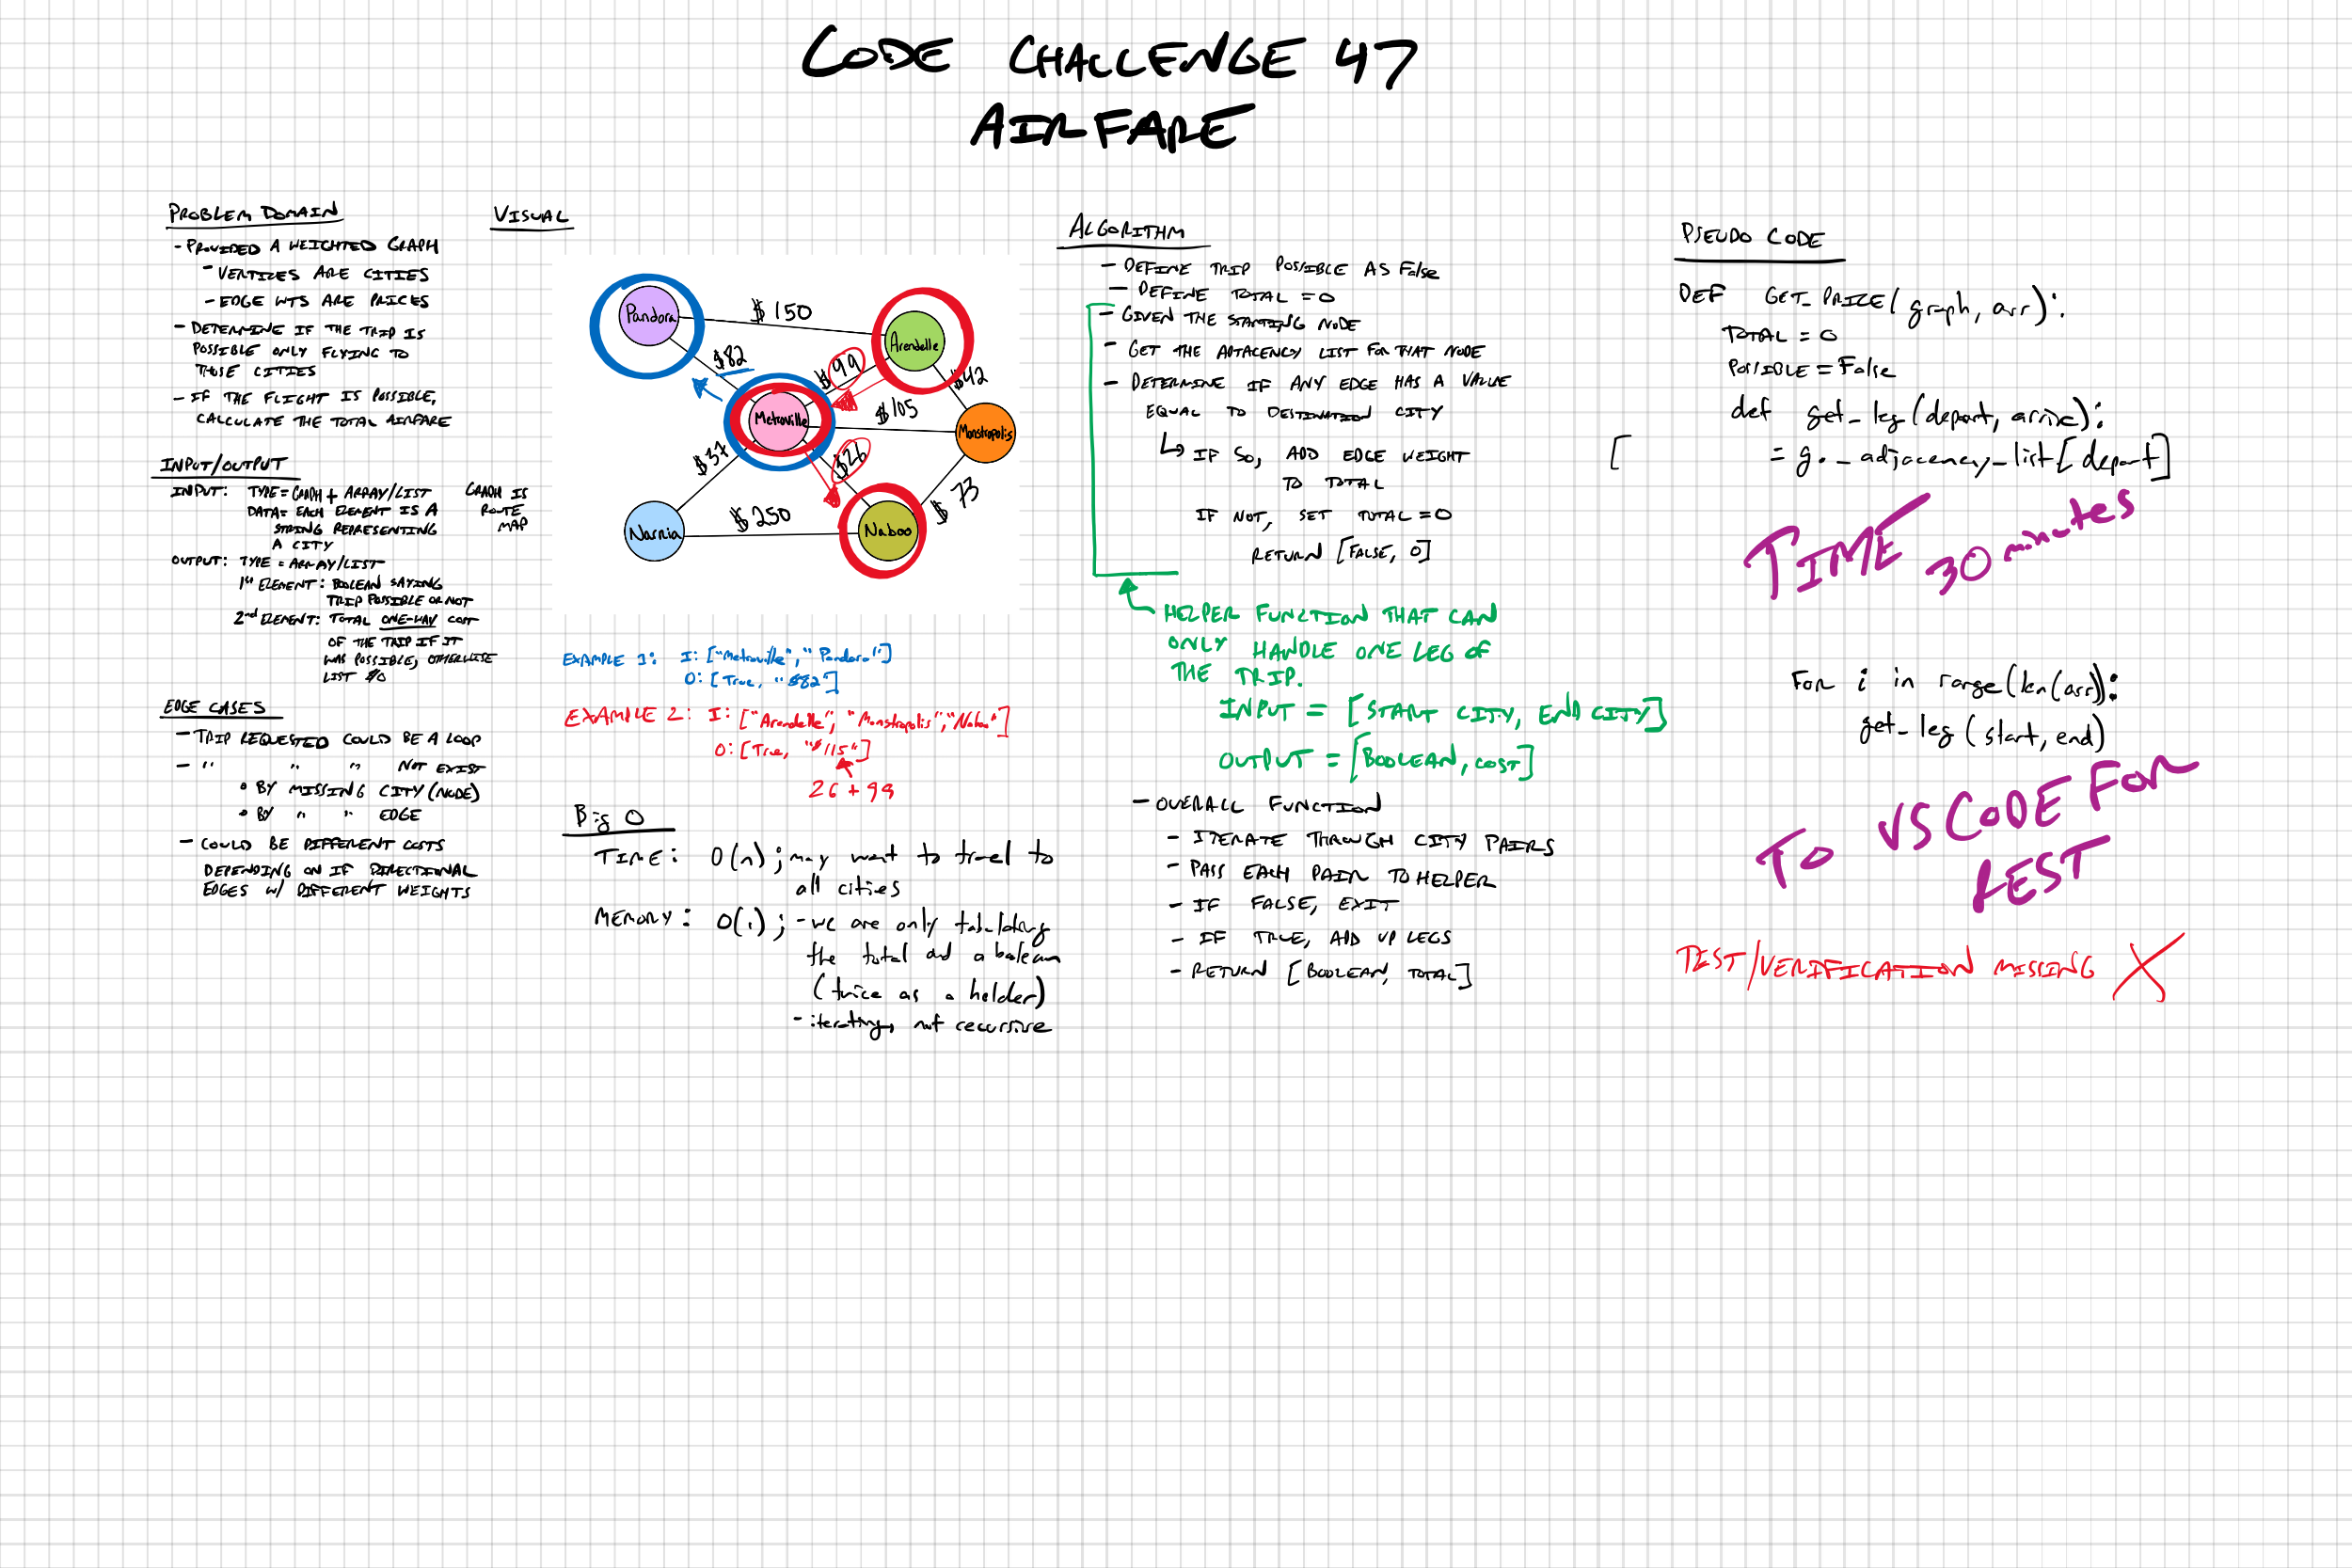 CODE CHALLENGE 47
AIRFARE
PROBLEM DOMAIN
- PROVIDED A WEIGHTED GRAPH
- VERTIZES ARE CITIES
- EDGE WTS ARE PRICES
- DETERMINE IF THE TRIP IS
POSSIBLE ONLY FLYING TO
THOSE CITIES
- IF THE FLIGHT IS POSSIBLE,
CALCULATE THE TOTAL AIRFARE
INPUT/OUTPUT
INPUT: TYPE = GRAPH + ARRAY/LIST
DATA = EACH ELEMENT IS A
STRING REPRESENTING
A CITY
GRAPH IS
ROUTE
MAP
OUTPUT: TYPE = ARRAY/LIST
1st ELEMENT: BOOLEAN SAYING
TRIP POSSIBLE OR NOT
2nd ELEMENT: TOTAL ONE-WAY COST
OF THE TRIP IF IT
WAS POSSIBLE, OTHERWISE
LIST $0
EDGE CASES
- TRIP REQUESTED COULD BE A LOOP
- " " " NOT EXIST
• BY MISSING CITY (NODE)
• BY " " EDGE
- COULD BE DIFFERENT COSTS
DEPENDING ON IF DIRECTIONAL
EDGES W/ DIFFERENT WEIGHTS
VISUAL
Pandora
$150
Arendelle
$82
$99
$42
Metroville
$105
Monstropolis
$37
$26
$73
Narnia
$250
Naboo
EXAMPLE 1: I: ["Metroville", "Pandora"]
O: [True, "$82"]
EXAMPLE 2: I: ["Arendelle", "Monstropolis", "Naboo"]
O: [True, "$115"]
26 + 99
Big O
TIME: O(n); may want to travel to
all cities
MEMORY: O(1); - we are only tabulating
the total and a boolean
(twice as a helper)
- iterating, not recursive
ALGORITHM
- DEFINE TRIP POSSIBLE AS False
- DEFINE TOTAL = 0
- GIVEN THE STARTING NODE
- GET THE ADJACENCY LIST FOR THAT NODE
- DETERMINE IF ANY EDGE HAS A VALUE
EQUAL TO DESTINATION CITY
↳ IF SO, ADD EDGE WEIGHT
TO TOTAL
IF NOT, SET TOTAL = 0
RETURN [FALSE, 0]
HELPER FUNCTION THAT CAN
ONLY HANDLE ONE LEG OF
THE TRIP.
INPUT = [START CITY, END CITY]
OUTPUT = [BOOLEAN, COST]
- OVERALL FUNCTION
- ITERATE THROUGH CITY PAIRS
- PASS EACH PAIR TO HELPER
- IF FALSE, EXIT
- IF TRUE, ADD UP LEGS
- RETURN [BOOLEAN, TOTAL]
PSEUDO CODE
DEF GET_PRIZE(graph, arr):
TOTAL = 0
POSSIBLE = False
def get_leg(depart, arrive):
[ = g._adjacency_list[depart]
TIME 30 minutes
FOR i in range(len(arr)):
get_leg(start, end)
TO VS CODE FOR
REST
TEST/VERIFICATION MISSING X